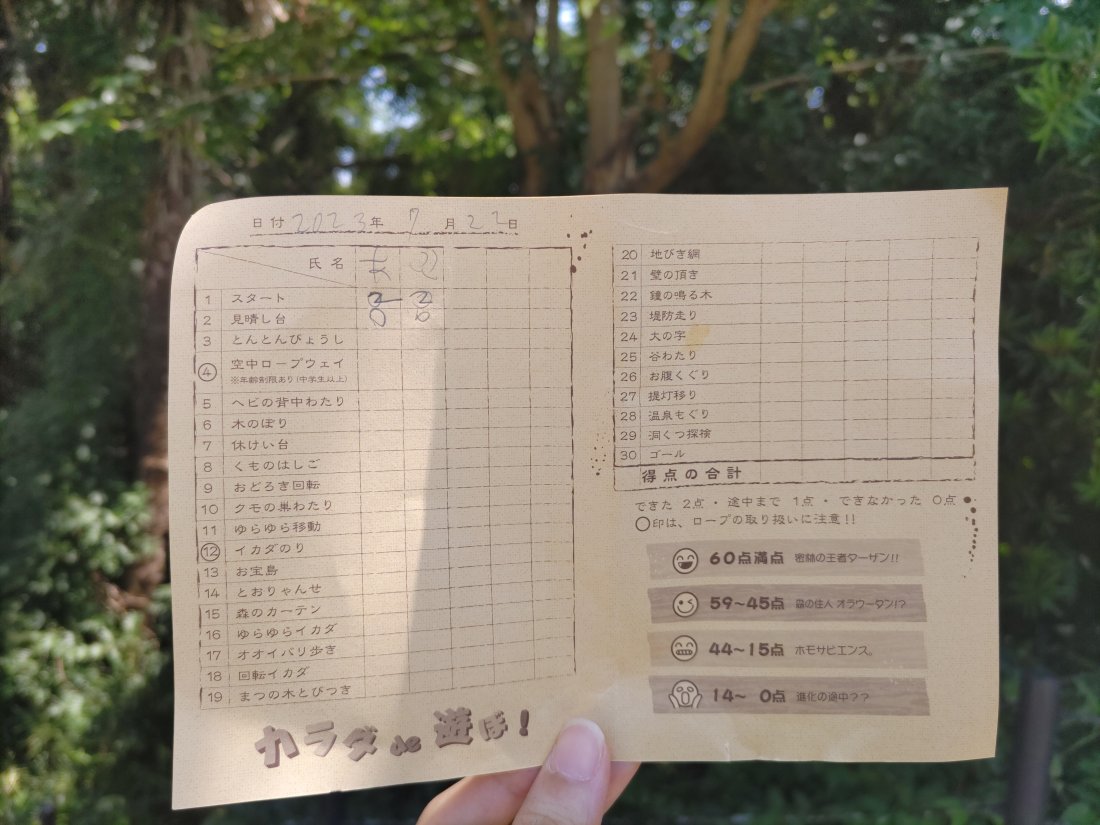 日付 2023年 7月22日
氏名
1 スタート 2 2
2 見晴し台 0 0
3 とんとんびょうし
4 空中ロープウェイ
※年齢制限あり(中学生以上)
5 ヘビの背中わたり
6 木のぼり
7 休けい台
8 くものはしご
9 おどろき回転
10 クモの巣わたり
11 ゆらゆら移動
12 イカダのり
13 お宝島
14 とおりゃんせ
15 森のカーテン
16 ゆらゆらイカダ
17 オオイバリ歩き
18 回転イカダ
19 まつの木とびつき
カラダde遊ぼ!
20 地びき網
21 壁の頂き
22 鐘の鳴る木
23 堤防走り
24 大の字
25 谷わたり
26 お腹くぐり
27 提灯移り
28 温泉もぐり
29 洞くつ探検
30 ゴール
得点の合計
できた 2点・途中まで 1点・できなかった 0点
○印は、ロープの取り扱いに注意!!
60点満点 密林の王者ターザン!!
59～45点 森の住人 オラウータン!?
44～15点 ホモサピエンス。
14～ 0点 進化の途中??